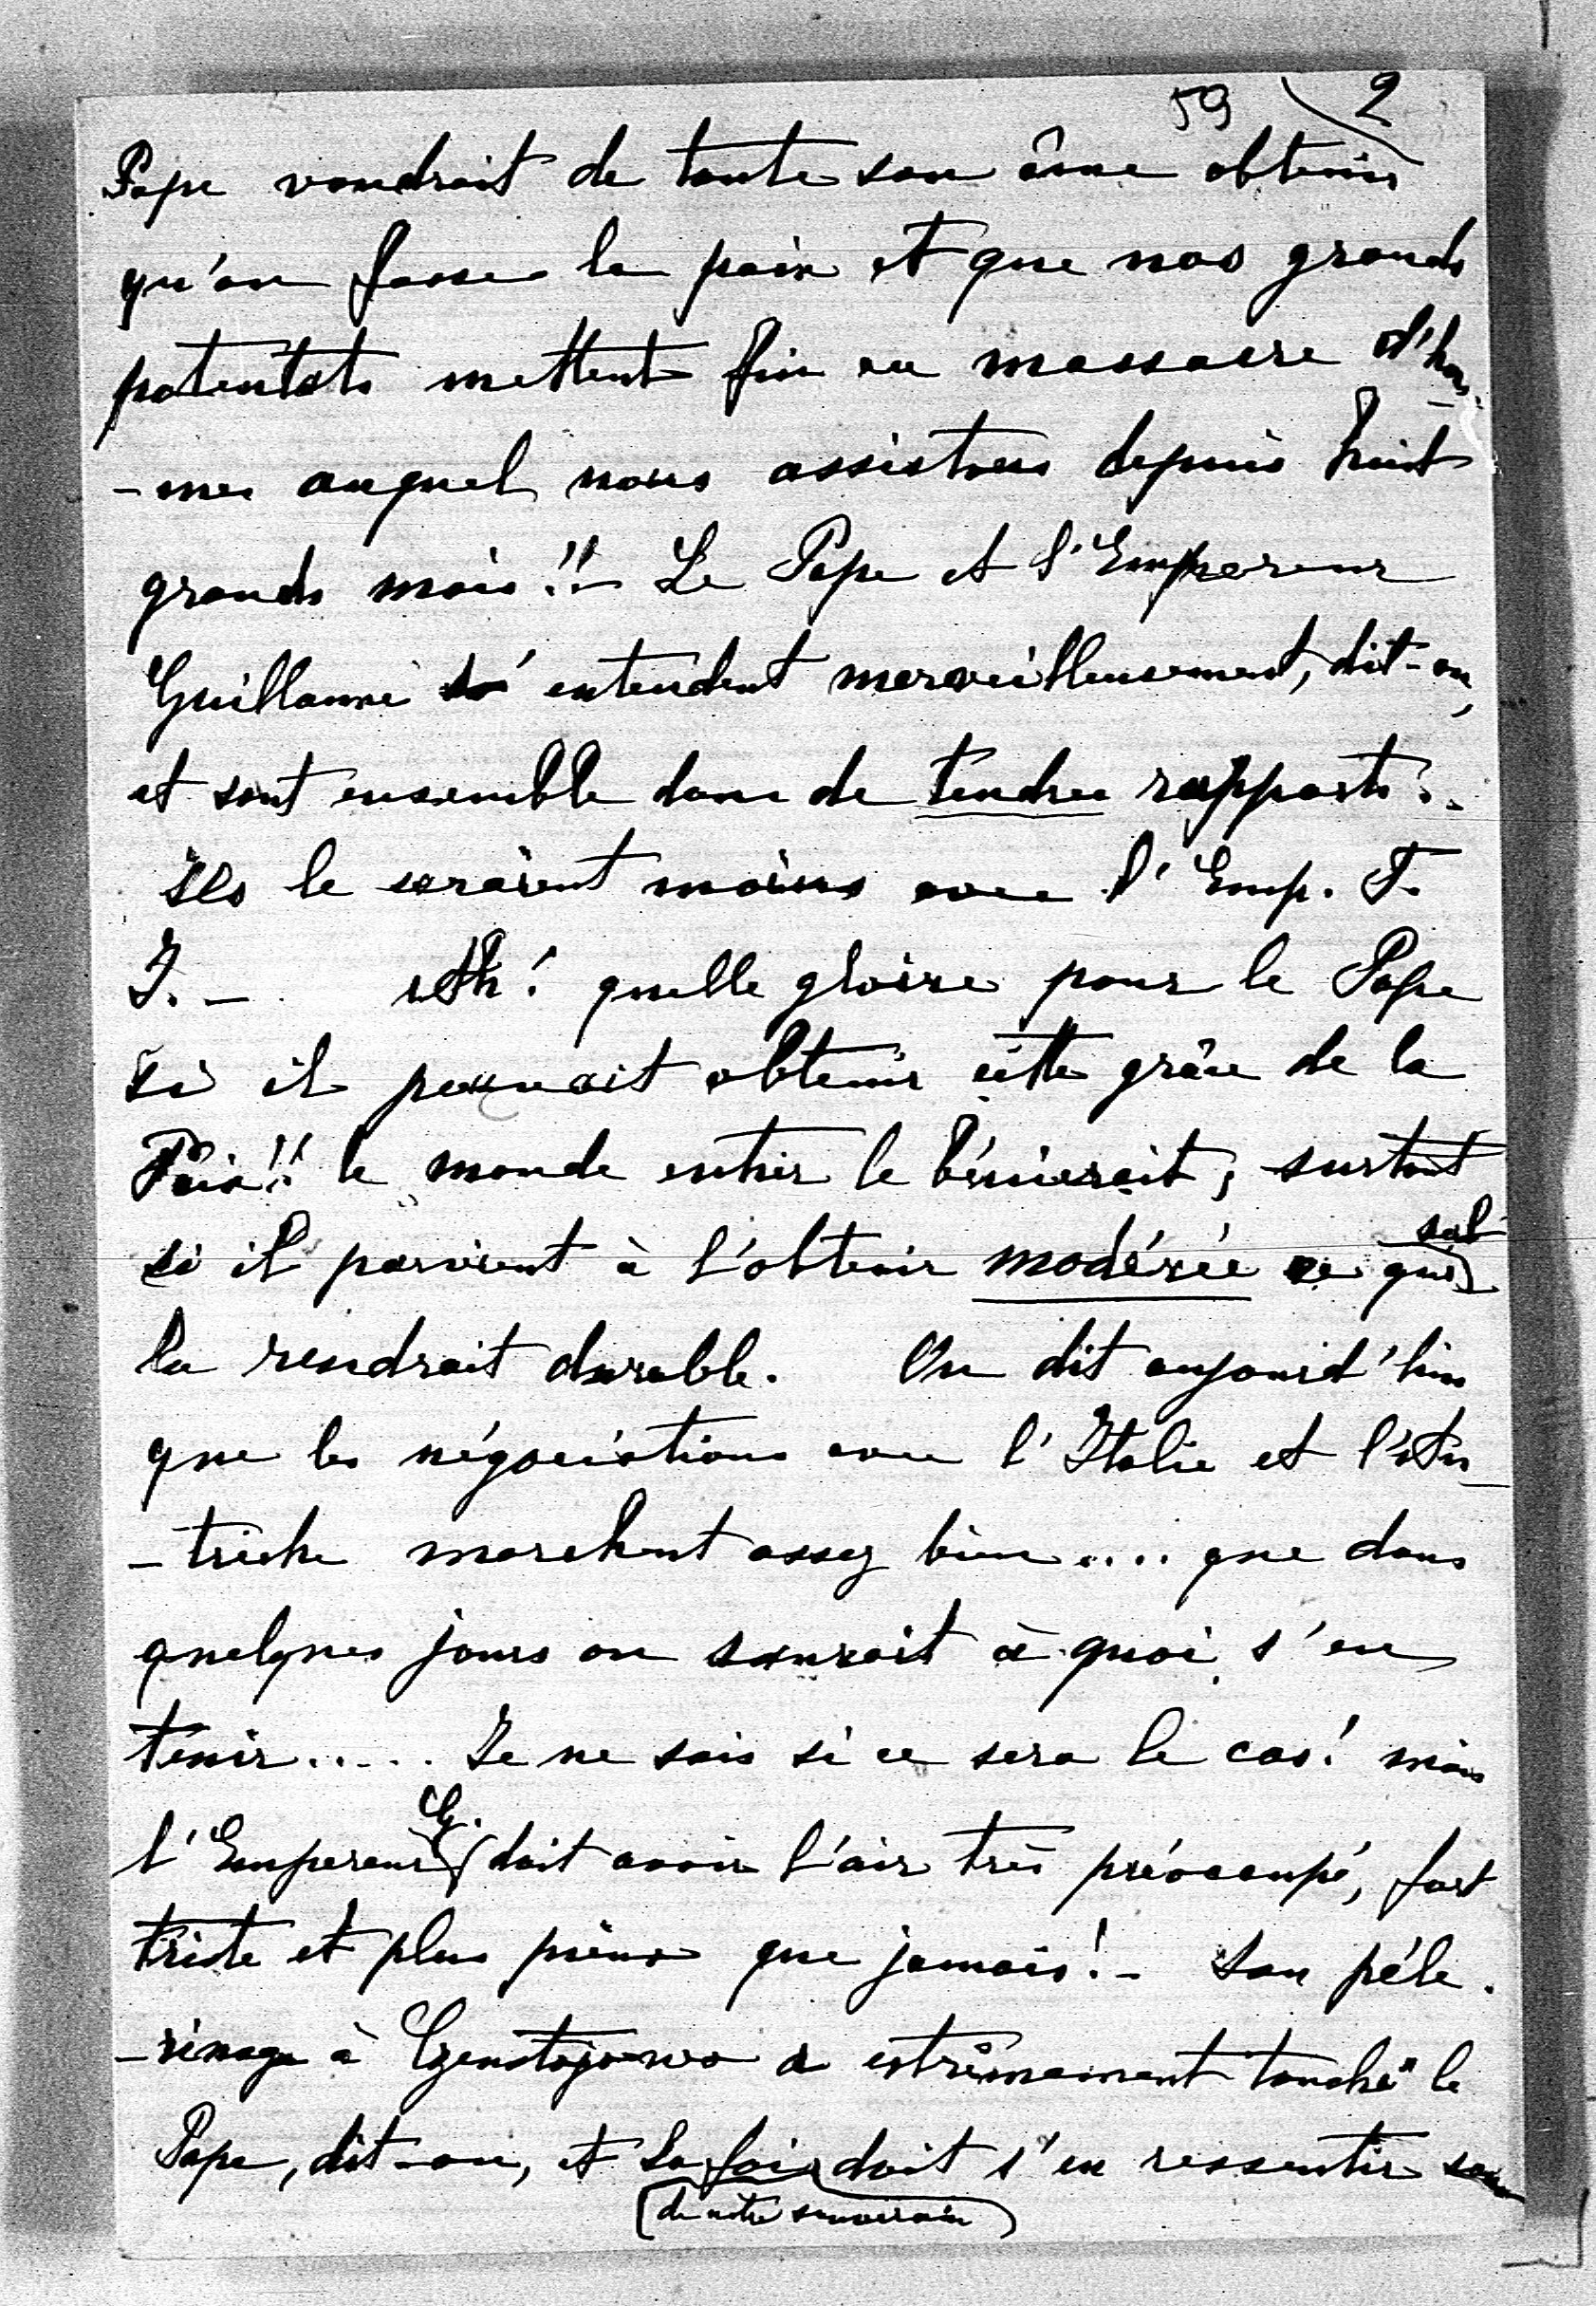 59 2
Pape voudrait de toute son âme obtenir
qu'on fasse la paix et que nos grands
potentats mettent fin au massacre d'hom-
-mes auquel nous assistons depuis huit
grands mois!! - Le Pape et l'Empereur
Guillaume s'entendent merveilleusement, dit-on,
et sont ensemble dans de tendres rapports..
Ils le seraient moins avec l'Emp. F.
J. - Ah! quelle gloire pour le Pape
si il pouvait obtenir cette grâce de la
Paix!! le monde entier le bénierait, surtout
si il parvient à l'obtenir modérée ce qui seul
la rendrait durable. On dit aujourd'hui
que les négociations avec l'Italie et l'Au-
-triche marchent assez bien.... que dans
quelques jours on saurait à quoi s'en
tenir..... Je ne sais si ce sera le cas! mais
l'Empereur G. doit avoir l'air très préoccupé, fort
triste et plus pieux que jamais! - Son péle-
-rinage à Czenstojowa a extrêmement touché le
Pape, dit-on, et sa foi doit s'en ressentir
(de notre souverain)